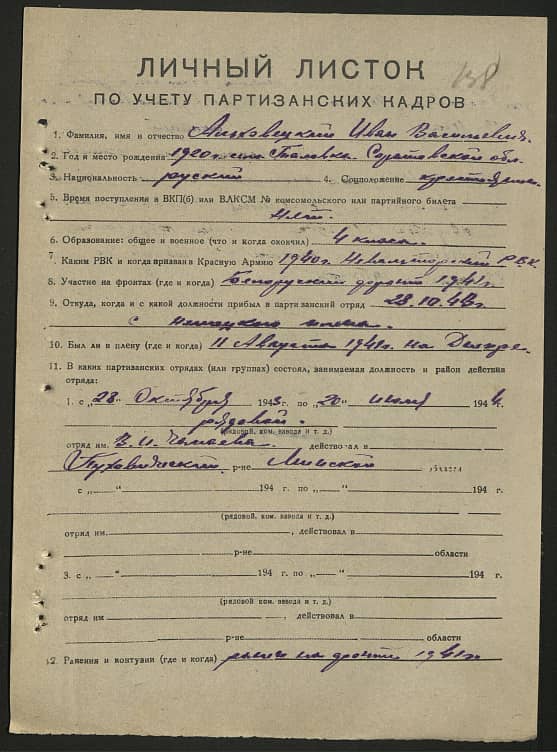 138
ЛИЧНЫЙ ЛИСТОК
ПО УЧЕТУ ПАРТИЗАНСКИХ КАДРОВ
1. Фамилия, имя и отчество Иван Васильевич
2. Год и место рождения 1920 г. Саратовской обл.
3. Национальность руский 4. Соцположение
5. Время поступления в ВКП(б) или ВЛКСМ № комсомольского или партийного билета
6. Образование: общее и военное (что и когда окончил) 4 класса.
7. Каким РВК и когда призван в Красную Армию 1940 г. РВК
8. Участие на фронтах (где и когда) Белоруский 1941 г.
9. Откуда, когда и с какой должности прибыл в партизанский отряд 28.10.43 г.
с немецкого плена.
10. Был ли в плену (где и когда) 11 Августа 1941 г. на Днепре.
11. В каких партизанских отрядах (или группах) состоял, занимаемая должность и район действия
отряда:
1. с „28" Октября 1943 г. по „20" июля 1944 г.
рядовой.
(рядовой, ком. взвода и т. д.)
отряд им. В. И. Чапаева. действовал в
Пуховический р-не Минской области
с „ " 194 г. по „ " 194 г.
(рядовой, ком. взвода и т. д.)
отряд им. , действовал в
р-не области
3. с „ " 194 г. по „ " 194 г.
(рядовой, ком. взвода и т. д.)
отряд им , действовал в
р-не области
12. Ранения и контузии (где и когда) ранен на фронте 1941 г.